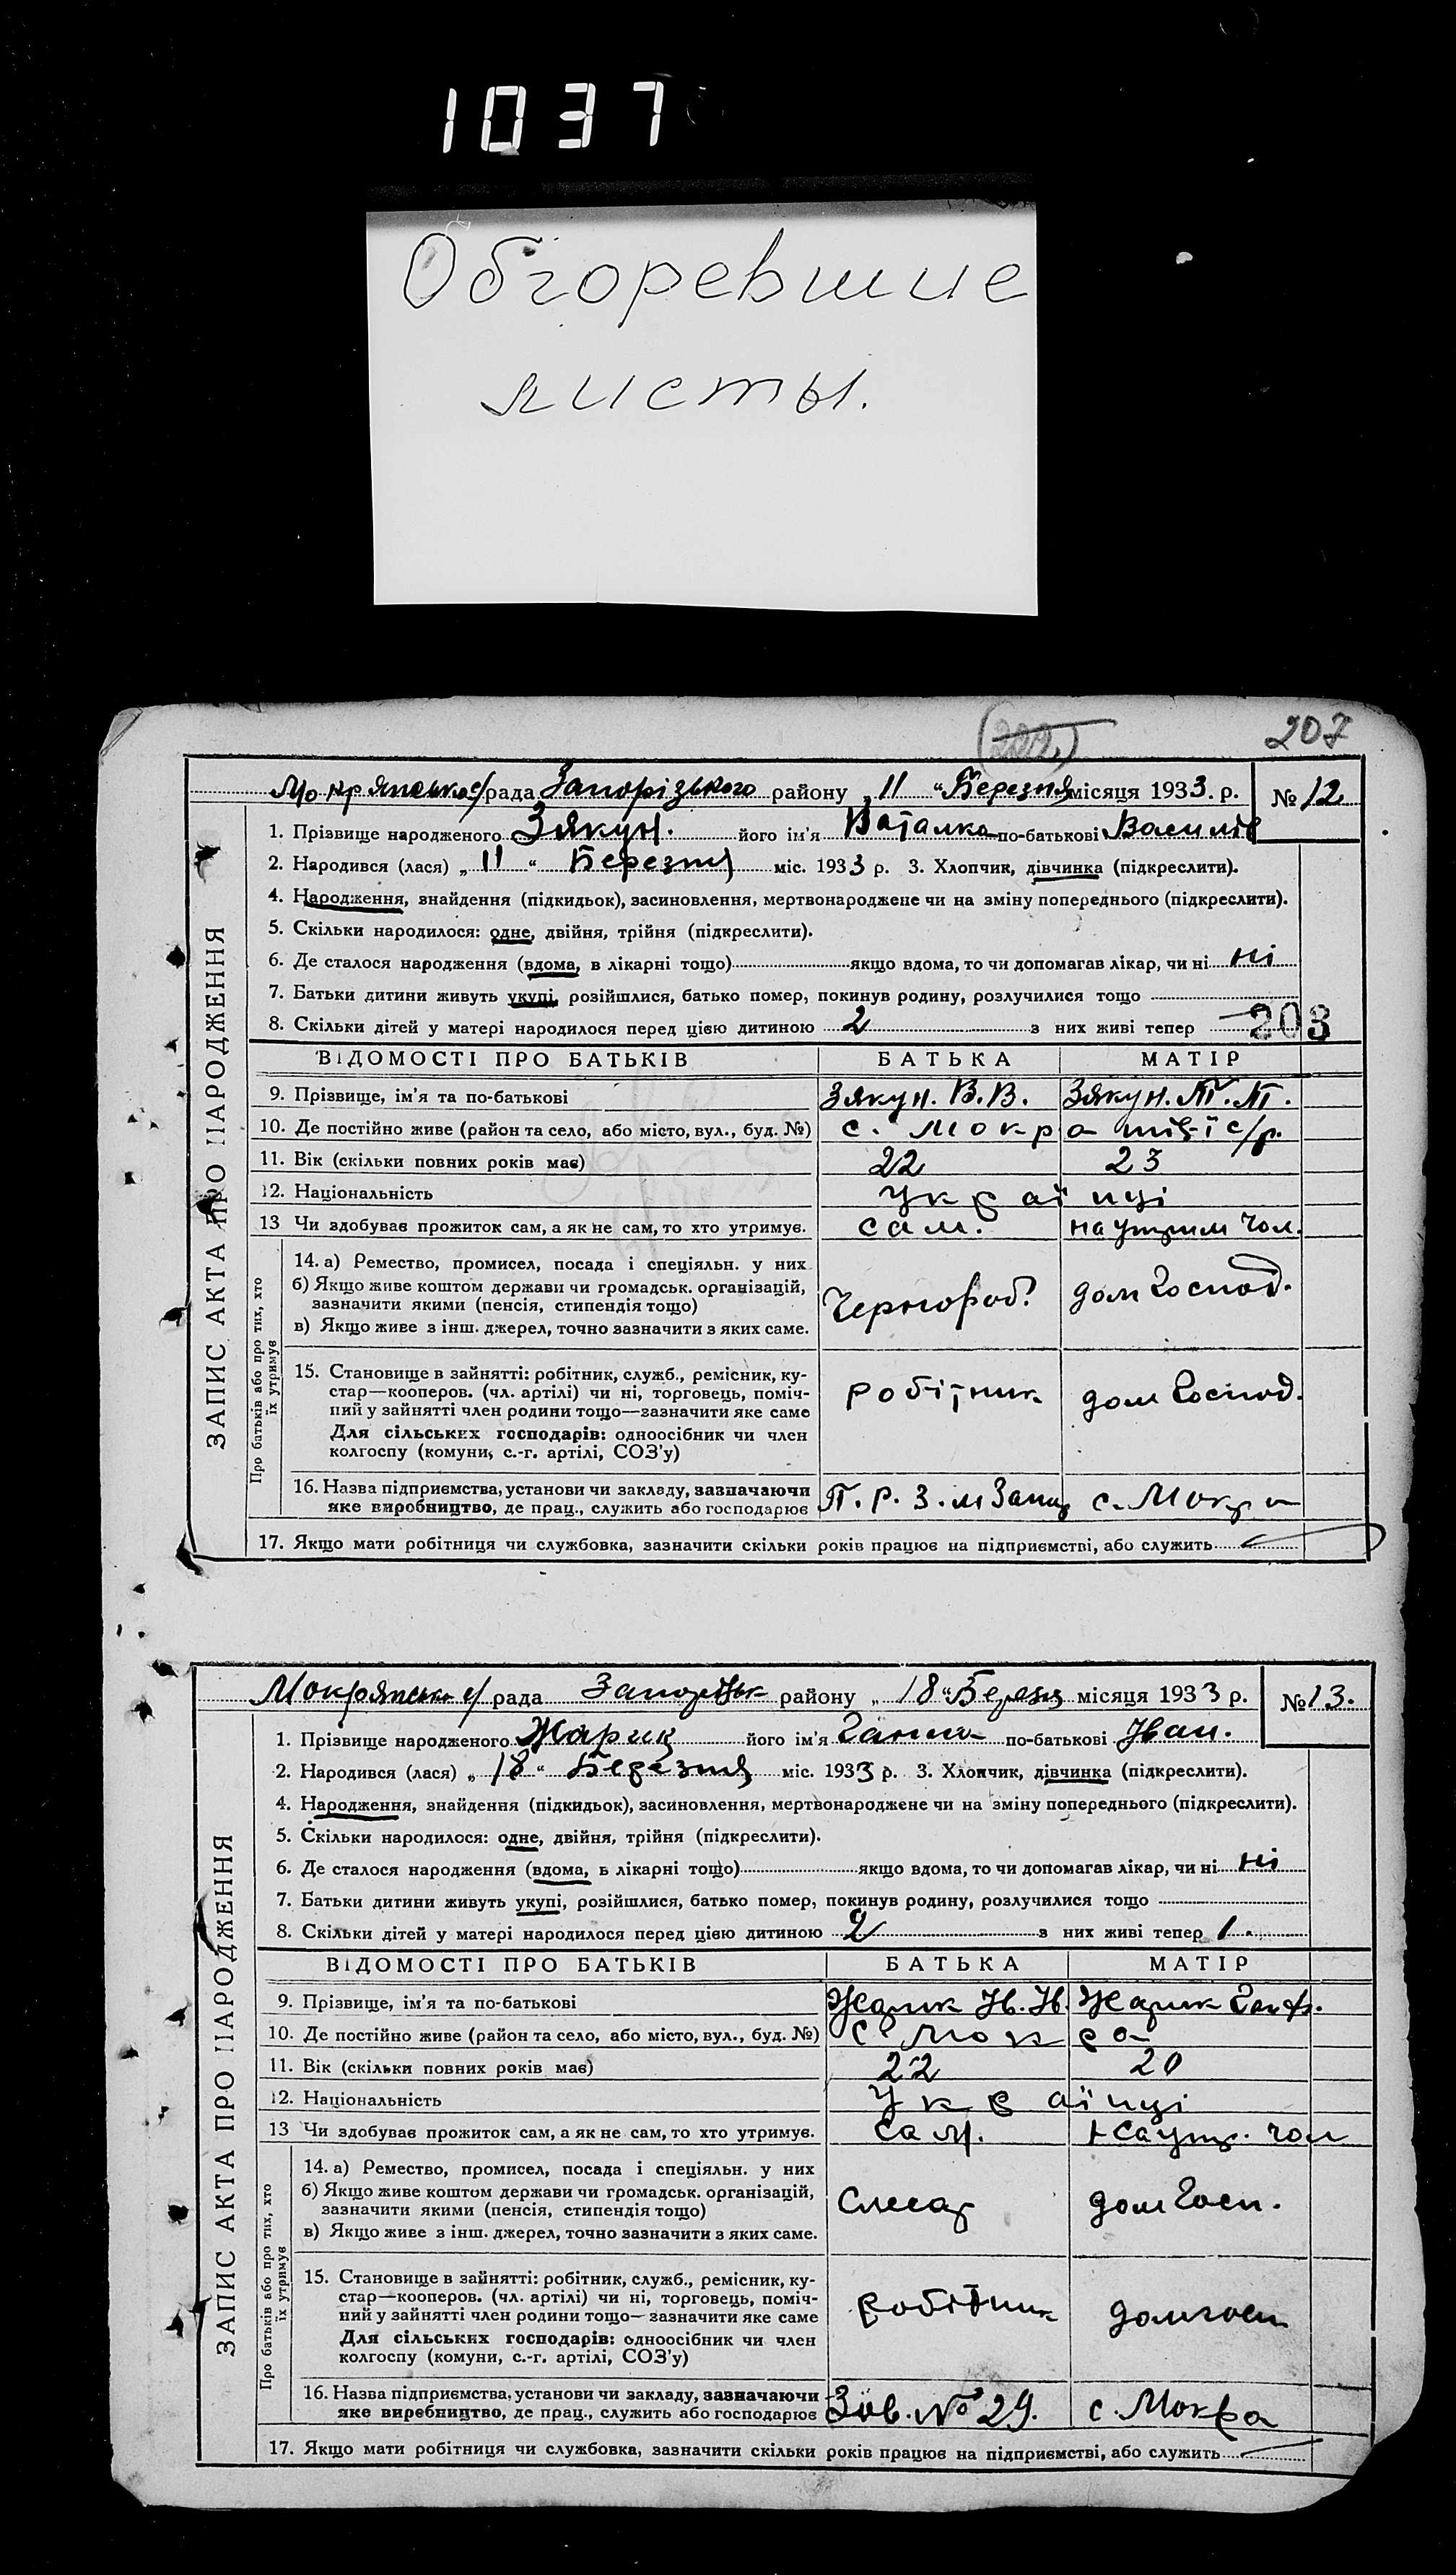 1037
Обгоревшие
листы.
207
Мокрянська с/рада Запорізького району „ 11 “ Березня місяця 1933 р. № 12
1. Прізвище народженого Зякун. його ім'я Наталка по-батькові Василів
2. Народився (лася) „ 11 “ Березня міс. 1933 р. 3. Хлопчик, дівчинка (підкреслити).
4. Народження, знайдення (підкидьок), засиновлення, мертвонароджене чи на зміну попереднього (підкреслити).
5. Скільки народилося: одне, двійня, трійня (підкреслити).
6. Де сталося народження (вдома, в лікарні тощо) якщо вдома, то чи допомагав лікар, чи ні ні
7. Батьки дитини живуть укупі, розійшлися, батько помер, покинув родину, розлучилися тощо
8. Скільки дітей у матері народилося перед цією дитиною 2 з них живі тепер
203
ЗАПИС АКТА ПРО НАРОДЖЕННЯ
ВІДОМОСТІ ПРО БАТЬКІВ БАТЬКА МАТІР
9. Прізвище, ім'я та по-батькові Зякун. В.В. Зякун. Т. Т.
10. Де постійно живе (район та село, або місто, вул., буд. №) с. Мокра с/р.
11. Вік (скільки повних років має) 22 23
12. Національність Українці
13 Чи здобуває прожиток сам, а як не сам, то хто утримує. сам. на утрим чол.
Про батьків або про тих, хто
їх утримує
14. а) Ремество, промисел, посада і спеціяльн. у них
б) Якщо живе коштом держави чи громадськ. організацій,
зазначити якими (пенсія, стипендія тощо)
в) Якщо живе з інш. джерел, точно зазначити з яких саме.
Чернороб. дом господ.
15. Становище в зайнятті: робітник, служб., ремісник, ку-
стар—кооперов. (чл. артілі) чи ні, торговець, поміч-
ний у зайнятті член родини тощо—зазначити яке саме
Для сільських господарів: одноосібник чи член
колгоспу (комуни, с.-г. артілі, СОЗ'у)
робітник дом господ.
16. Назва підприємства, установи чи закладу, зазначаючи
яке виробництво, де прац., служить або господарює П. Р. З. м Запор с. Мокра
17. Якщо мати робітниця чи службовка, зазначити скільки років працює на підприємстві, або служить
Мокрянська с/ рада Запорізьк району „ 18 “ Березня місяця 1933 р. № 13.
1. Прізвище народженого Жарик його ім'я Ганна по-батькові Іван.
2. Народився (лася) „ 18 “ Березня міс. 1933 р. 3. Хлопчик, дівчинка (підкреслити).
4. Народження, знайдення (підкидьок), засиновлення, мертвонароджене чи на зміну попереднього (підкреслити).
5. Скільки народилося: одне, двійня, трійня (підкреслити).
6. Де сталося народження (вдома, в лікарні тощо) якщо вдома, то чи допомагав лікар, чи ні ні
7. Батьки дитини живуть укупі, розійшлися, батько помер, покинув родину, розлучилися тощо
8. Скільки дітей у матері народилося перед цією дитиною 2 з них живі тепер 1
ЗАПИС АКТА ПРО НАРОДЖЕННЯ
ВІДОМОСТІ ПРО БАТЬКІВ БАТЬКА МАТІР
9. Прізвище, ім'я та по-батькові Жарик Ів. Ів. Жарик
10. Де постійно живе (район та село, або місто, вул., буд. №) с. Мокра
11. Вік (скільки повних років має) 22 20
12. Національність Українці
13 Чи здобуває прожиток сам, а як не сам, то хто утримує. сам. на утр. чол
Про батьків або про тих, хто
їх утримує
14. а) Ремество, промисел, посада і спеціяльн. у них
б) Якщо живе коштом держави чи громадськ. організацій,
зазначити якими (пенсія, стипендія тощо)
в) Якщо живе з інш. джерел, точно зазначити з яких саме.
Слесар дом госп.
15. Становище в зайнятті: робітник, служб., ремісник, ку-
стар—кооперов. (чл. артілі) чи ні, торговець, поміч-
ний у зайнятті член родини тощо—зазначити яке саме
Для сільських господарів: одноосібник чи член
колгоспу (комуни, с.-г. артілі, СОЗ'у)
робітник домгосп
16. Назва підприємства, установи чи закладу, зазначаючи
яке виробництво, де прац., служить або господарює Зав. № 29. с. Мокра
17. Якщо мати робітниця чи службовка, зазначити скільки років працює на підприємстві, або служить